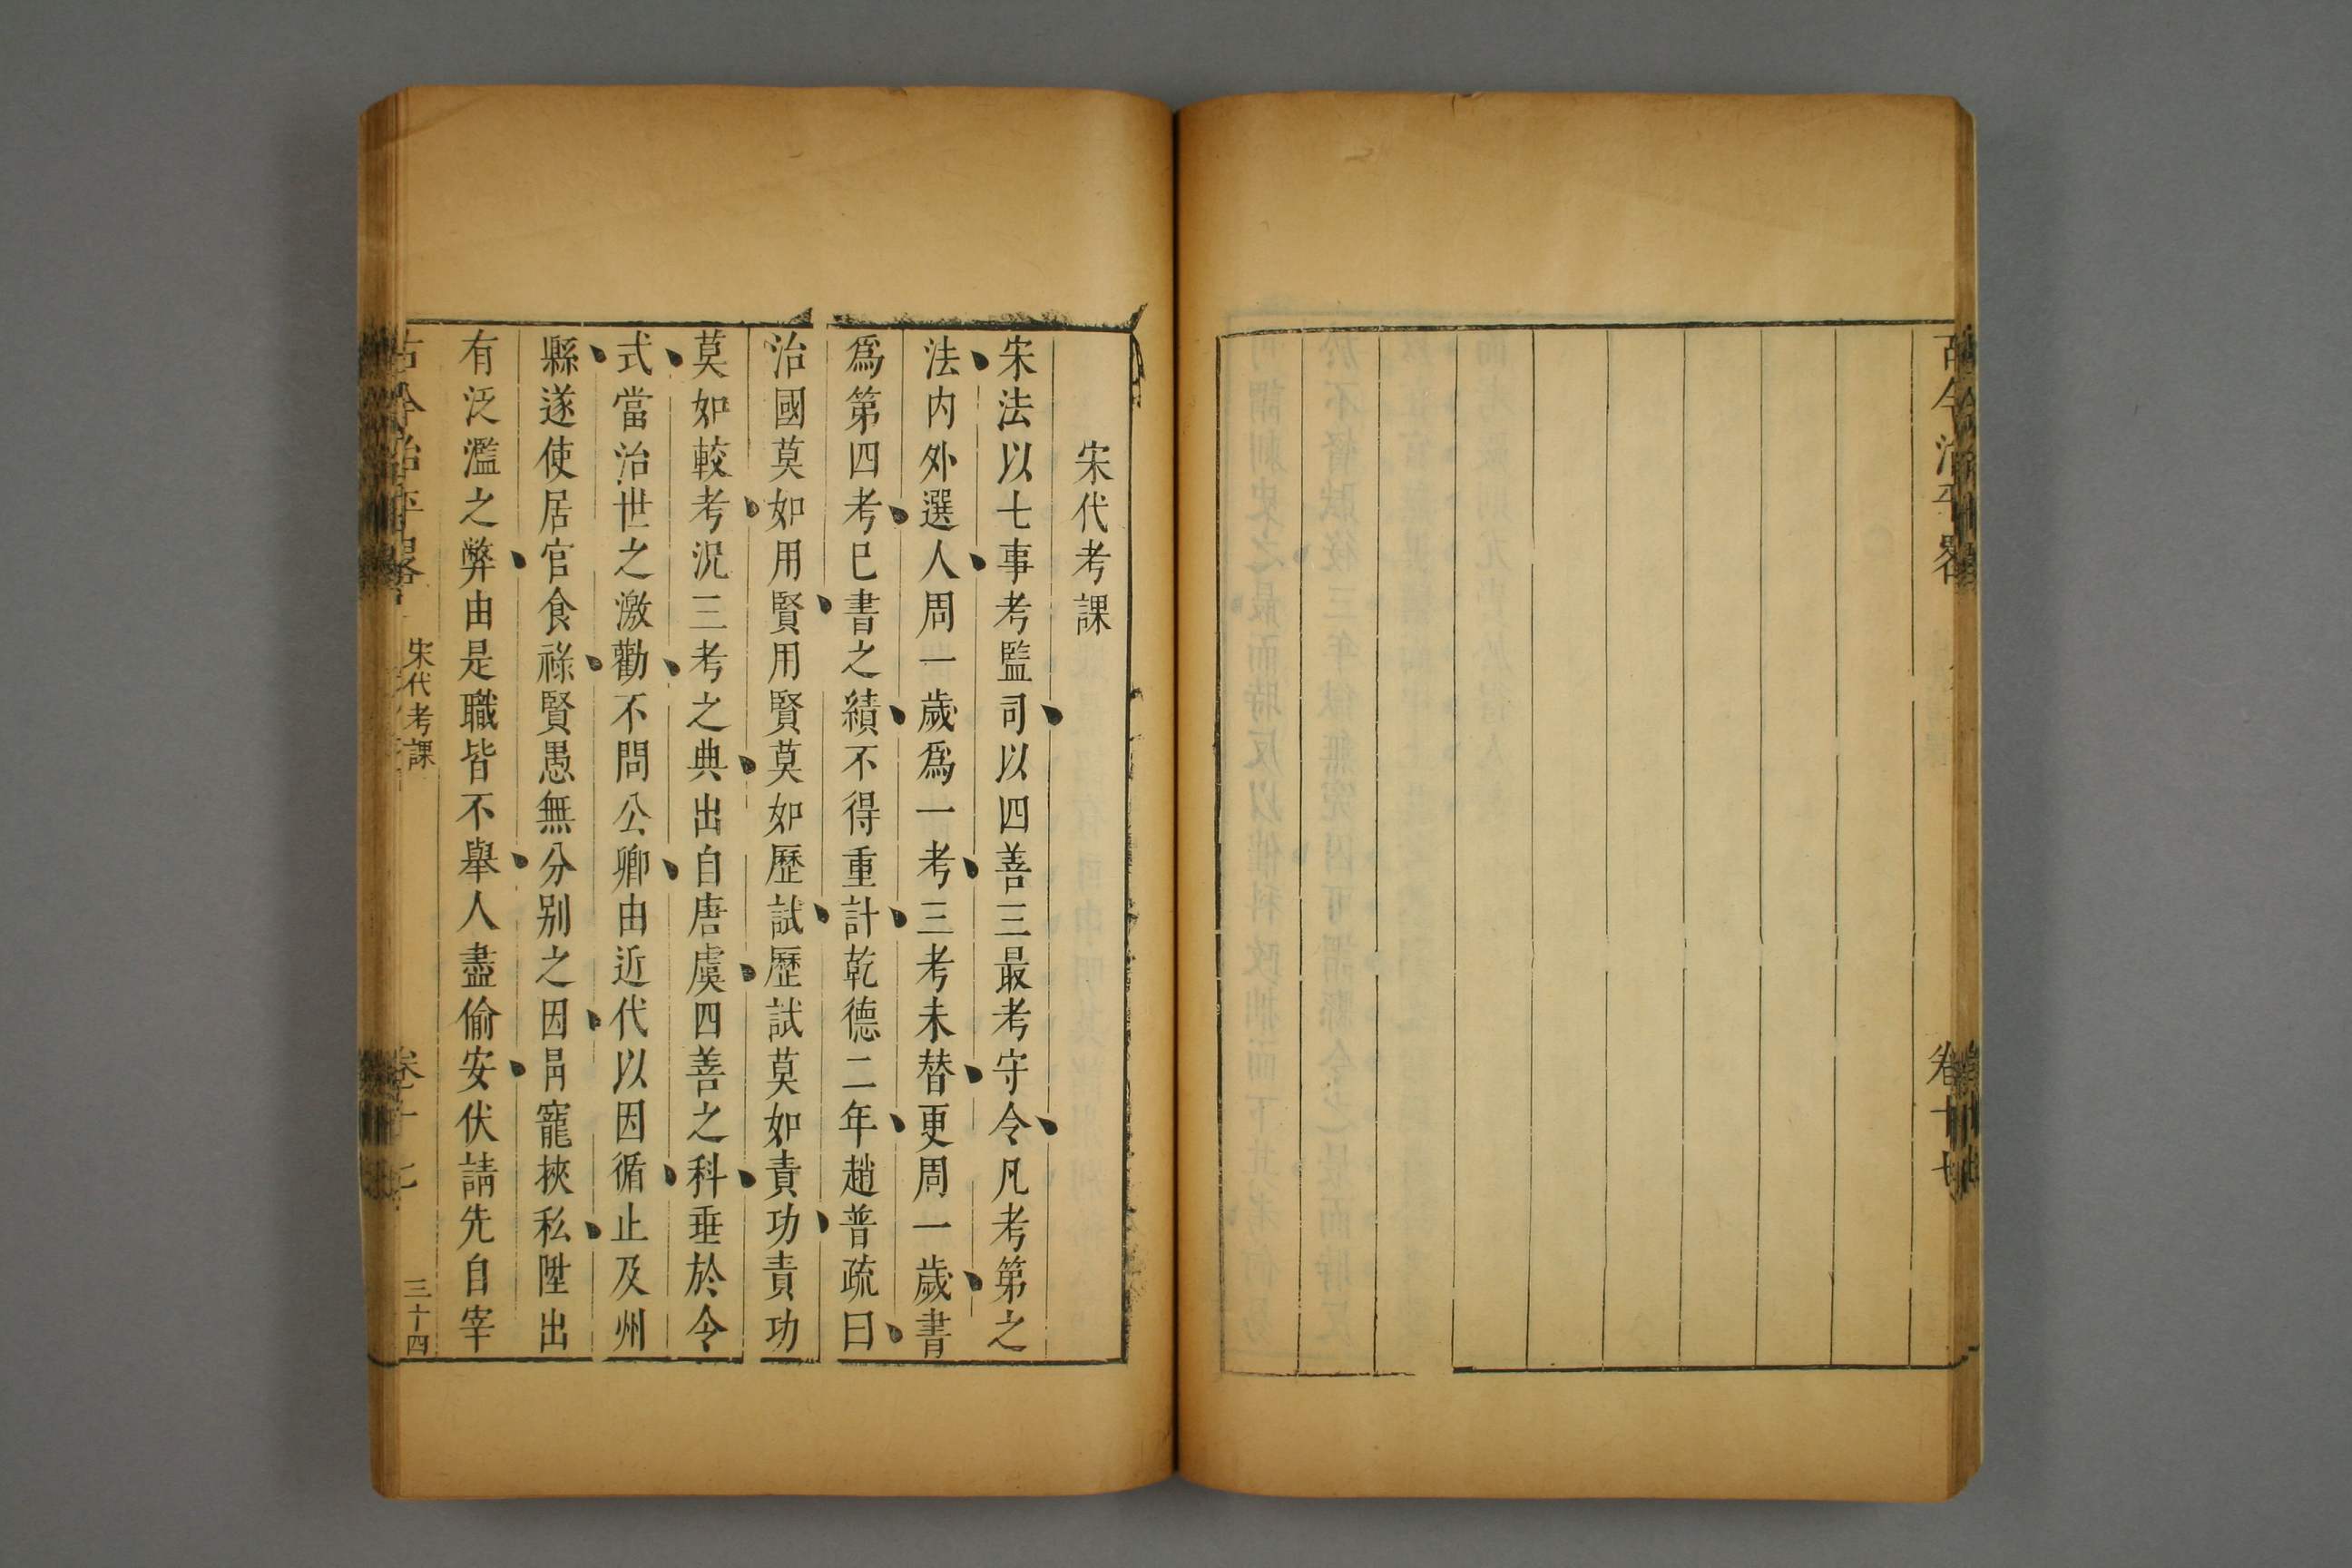 古今治平畧
卷十七
宋代考課
宋法以七事考監司以四善三最考守令凡考第之
法内外選人周一歲爲一考三考未替更周一歲書
爲第四考巳書之績不得重計乾德二年趙普疏曰
治國莫如用賢用賢莫如歷試歷試莫如責功責功
莫如較考況三考之典出自唐虞四善之科垂於令
式當治世之激勸不問公卿由近代以因循止及州
縣遂使居官食祿賢愚無分别之因冐寵挾私陞出
有泛濫之弊由是職皆不舉人盡偷安伏請先自宰
古今治平畧
宋代考課
卷十七
三十四